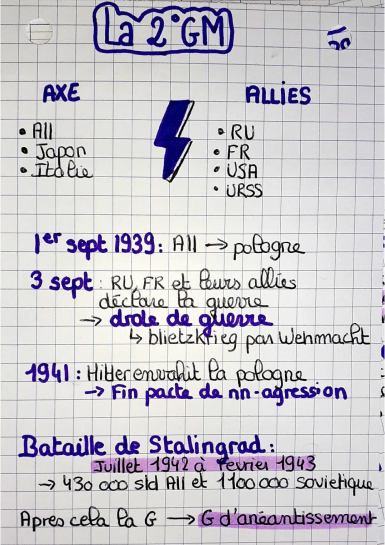 La 2° GM
AXE
• All
• Japon
• Italie
ALLIES
• RU
• FR
• USA
• URSS
1er sept 1939 : All → pologne
3 sept : RU, FR et leurs alliés
déclare la guerre
→ drole de guerre
↳ blietzkrieg par Wehrmacht
1941 : Hitler envahit la pologne
→ Fin pacte de nn-agression
Bataille de Stalingrad :
Juillet 1942 à Fevrier 1943
→ 430 000 sld All et 1 100 000 sovietique
Apres cela la G → G d'anéantissement